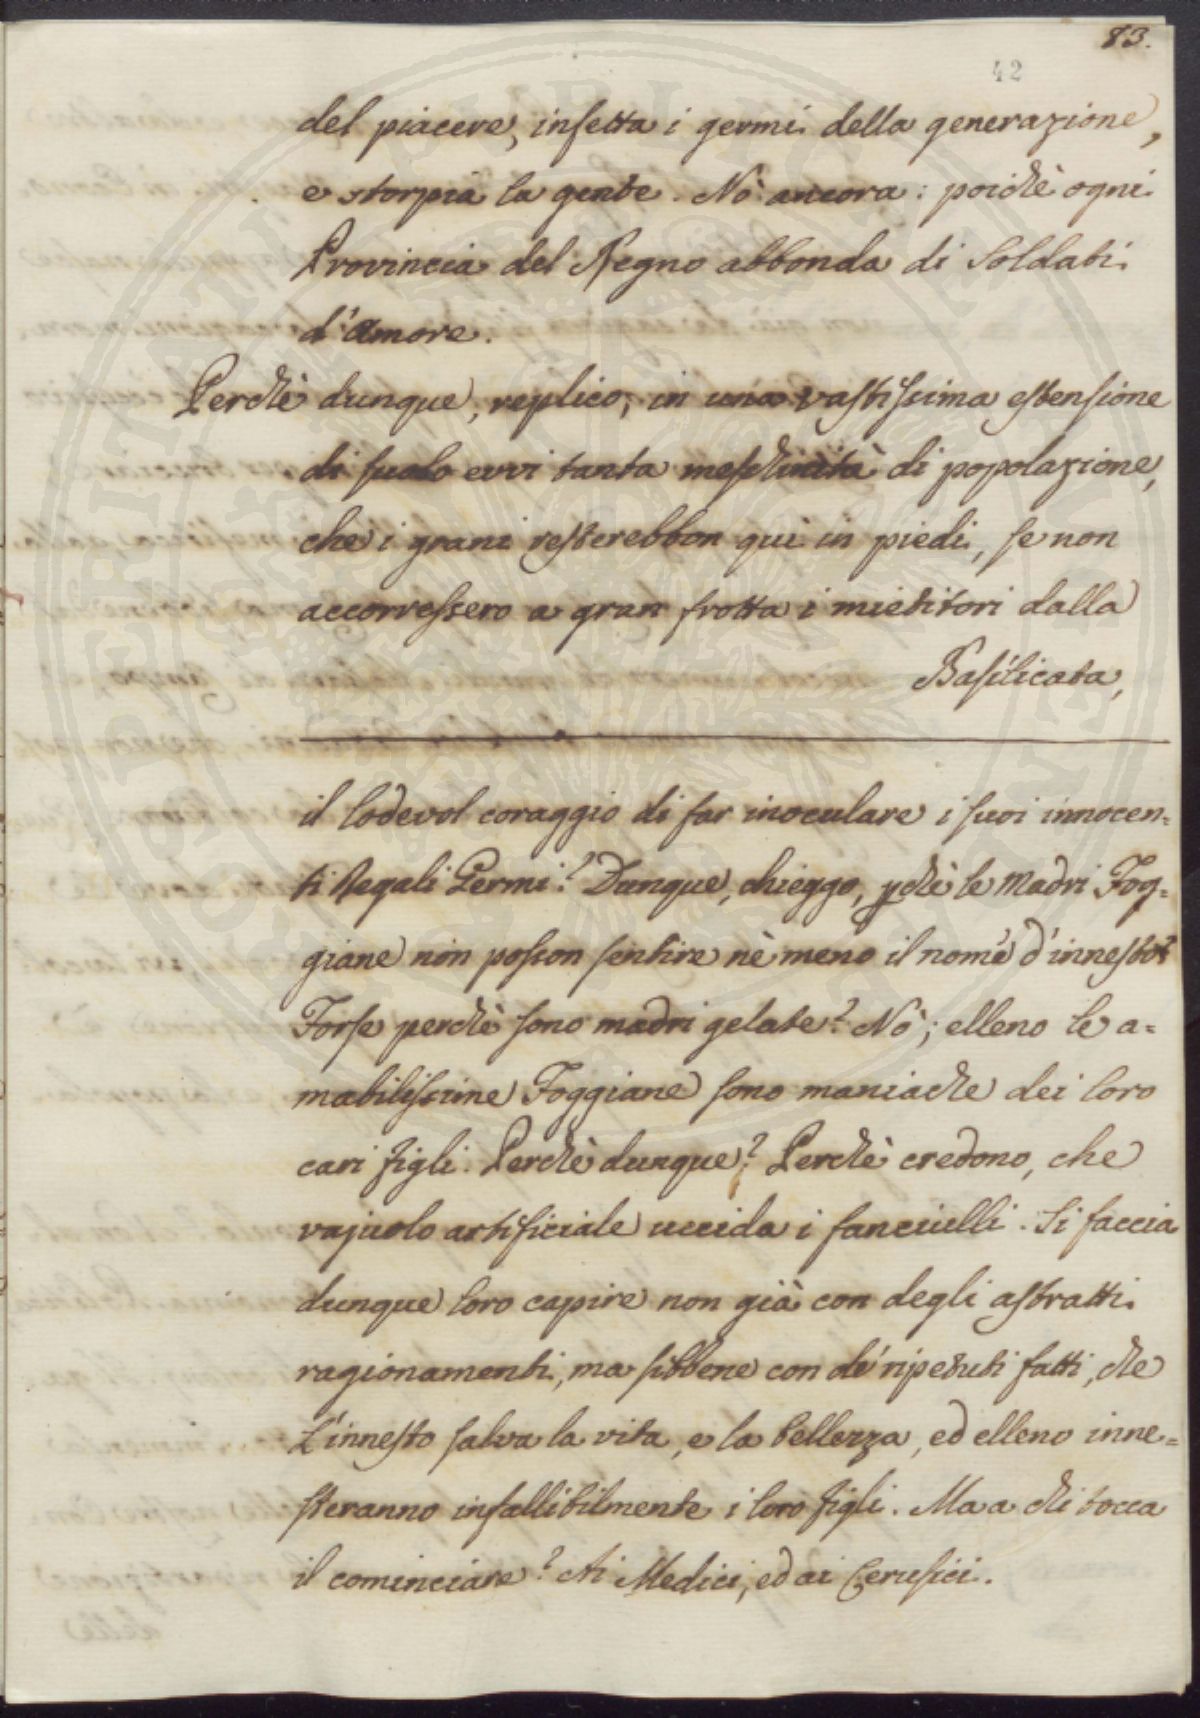 83.
42
del piacere, infetta i germi della generazione,
e storpia la gente. Nò ancora: poichè ogni
Provincia del Regno abbonda di soldati
d'Amore.
Perchè dunque, replico, in una vastissima estensione
di suolo evvi tanta meschinità di popolazione,
che i grani resterebbon qui in piedi, se non
accorressero a gran frotta i mietitori dalla
Basilicata,
il lodevol coraggio di far inoculare i suoi innocen=
ti Regali Germi? Dunque, chieggo, pchè le Madri Fog=
giane non posson sentire nè meno il nome d'innesto?
Forse perchè sono madri gelate? Nò; elleno le a=
mabilissime Foggiane sono maniache dei loro
cari figli. Perchè dunque? Perchè credono, che
vajuolo artificiale uccida i fanciulli. Si faccia
dunque loro capire non già con degli astratti
ragionamenti, ma sibbene con de' ripetuti fatti, che
l'innesto salva la vita, e la bellezza, ed elleno inne=
steranno infallibilmente i loro figli. Ma a chi tocca
il cominciare? Ai Medici, ed ai Cerusici.